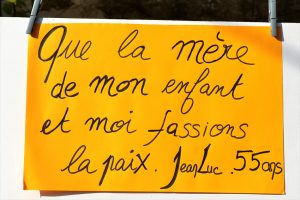 Que la mère
de mon enfant
et moi fassions
la paix. JeanLuc. 55ans